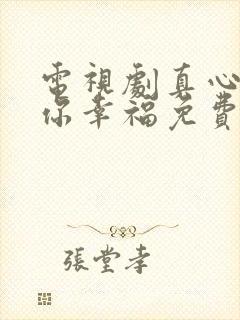 電視劇真心
你幸福免費
張堂孝